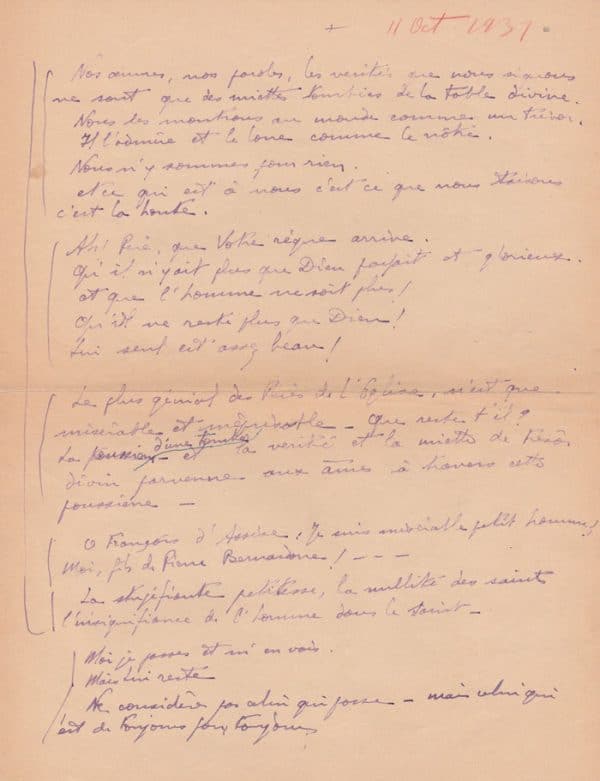 + 11 Oct 1931
Nos œuvres, nos paroles, les verités que nous
ne sont que des miettes tombées de la Table divine.
Nous les montrons au monde comme un trésor.
Il l'admire et le loue comme le nôtre.
Nous n'y sommes pour rien.
et ce qui est à nous c'est ce que nous taisons
c'est la honte.
Ah! Père, que Votre règne arrive.
Qu'il n'y ait plus que Dieu parfait et glorieux.
et que l'homme ne soit plus!
Qu'il ne reste plus que Dieu!
Lui seul est assez beau!
Le plus génial des Pères de l'Eglise, n'est que
misérable et méprisable - que reste t'il?
La d'une tombe et la verité et la miette de
divin parvenue aux âmes à travers cette
poussière -
O François d'Assise, Je suis misérable petit homme!
Moi, fils de Pierre Bernardone! - - -
La stupéfiante petitesse, la nullité des saints
l'insignifiance de l'homme dans le saint -
Moi je passe et m'en vais.
Mais Lui reste
Ne considère pas celui qui passe - mais celui qui
est de toujours pour toujours